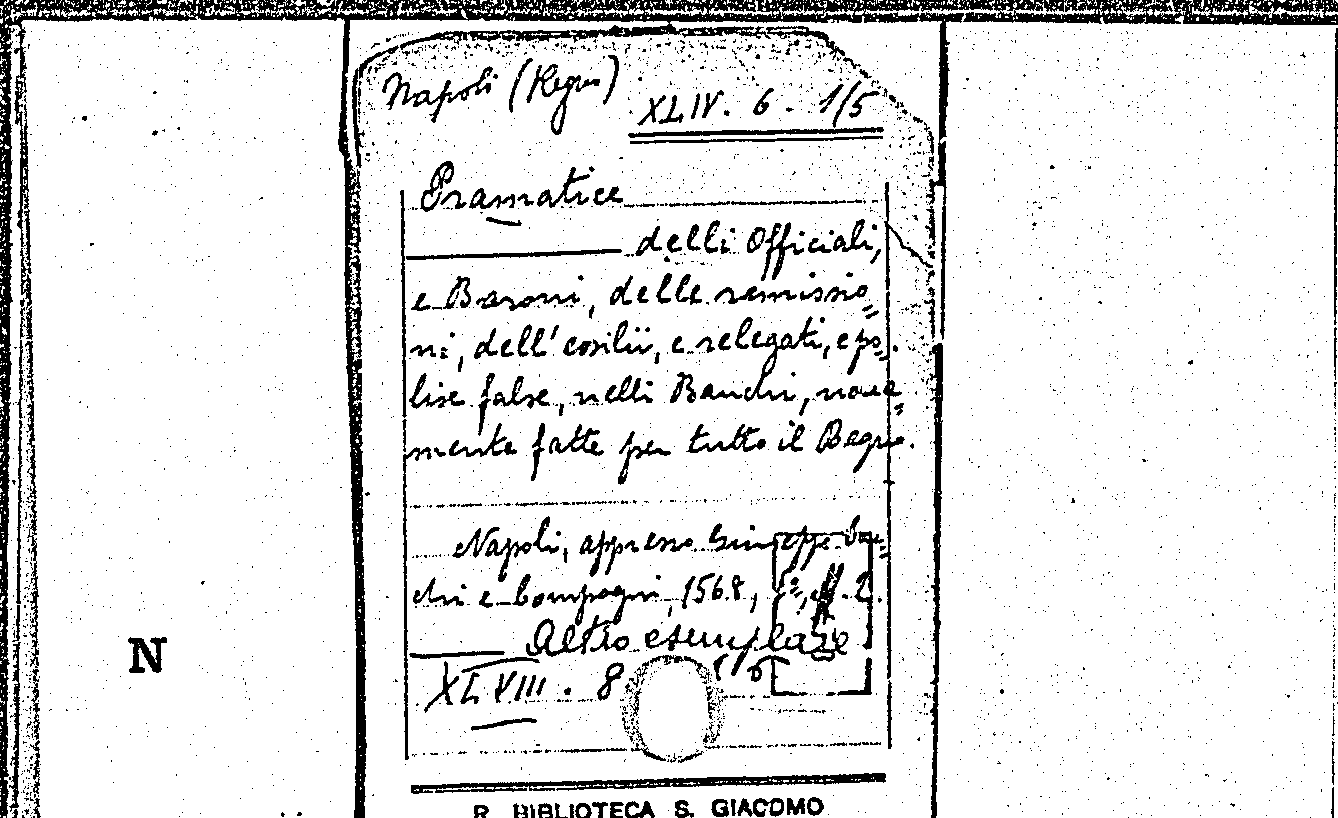 Napoli (Regno)
XLIV. 6. 1/5
Pramatice
delli Officiali,
e Baroni, delle remissio=
ni, dell'
e relegati, e po=
lise false, nelli Banchi, nova=
mente fatte per tutto il Regno.
Napoli, appresso Giuseppe
e Compagni, 1568,
Altro esemplare
XLVIII. 8
N
R. BIBLIOTECA S. GIACOMO